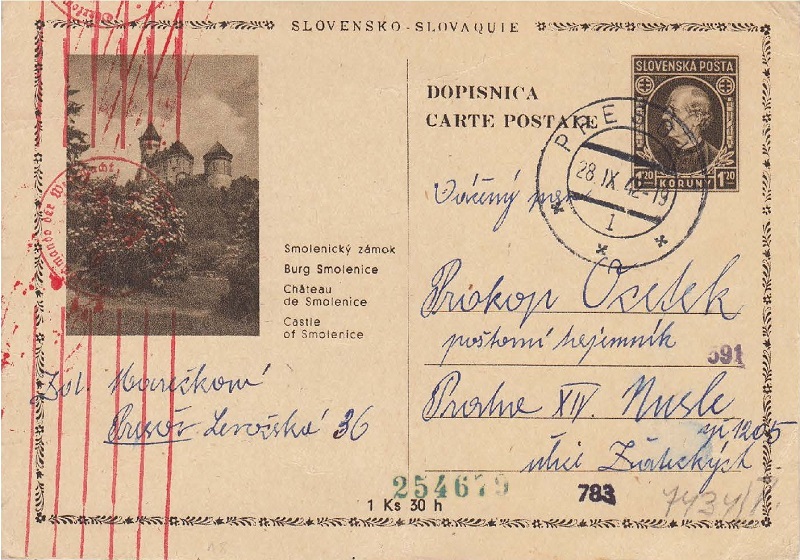 SLOVENSKO - SLOVAQUIE
DOPISNICA
CARTE POSTALE
SLOVENSKÁ POŠTA
1.20 KORUNY 1.20
PREŠ
28.IX.42-19
1
Vážený pan
Smolenický zámok
Burg Smolenice
Château
de Smolenice
Castle
of Smolenice
Prokop Osetek
poštovní tajemník
591
Praha XIV. Nusle
čp 1205
ulici Žateckých
Prešov Levočská 36
254679
783
1 Ks 30 h